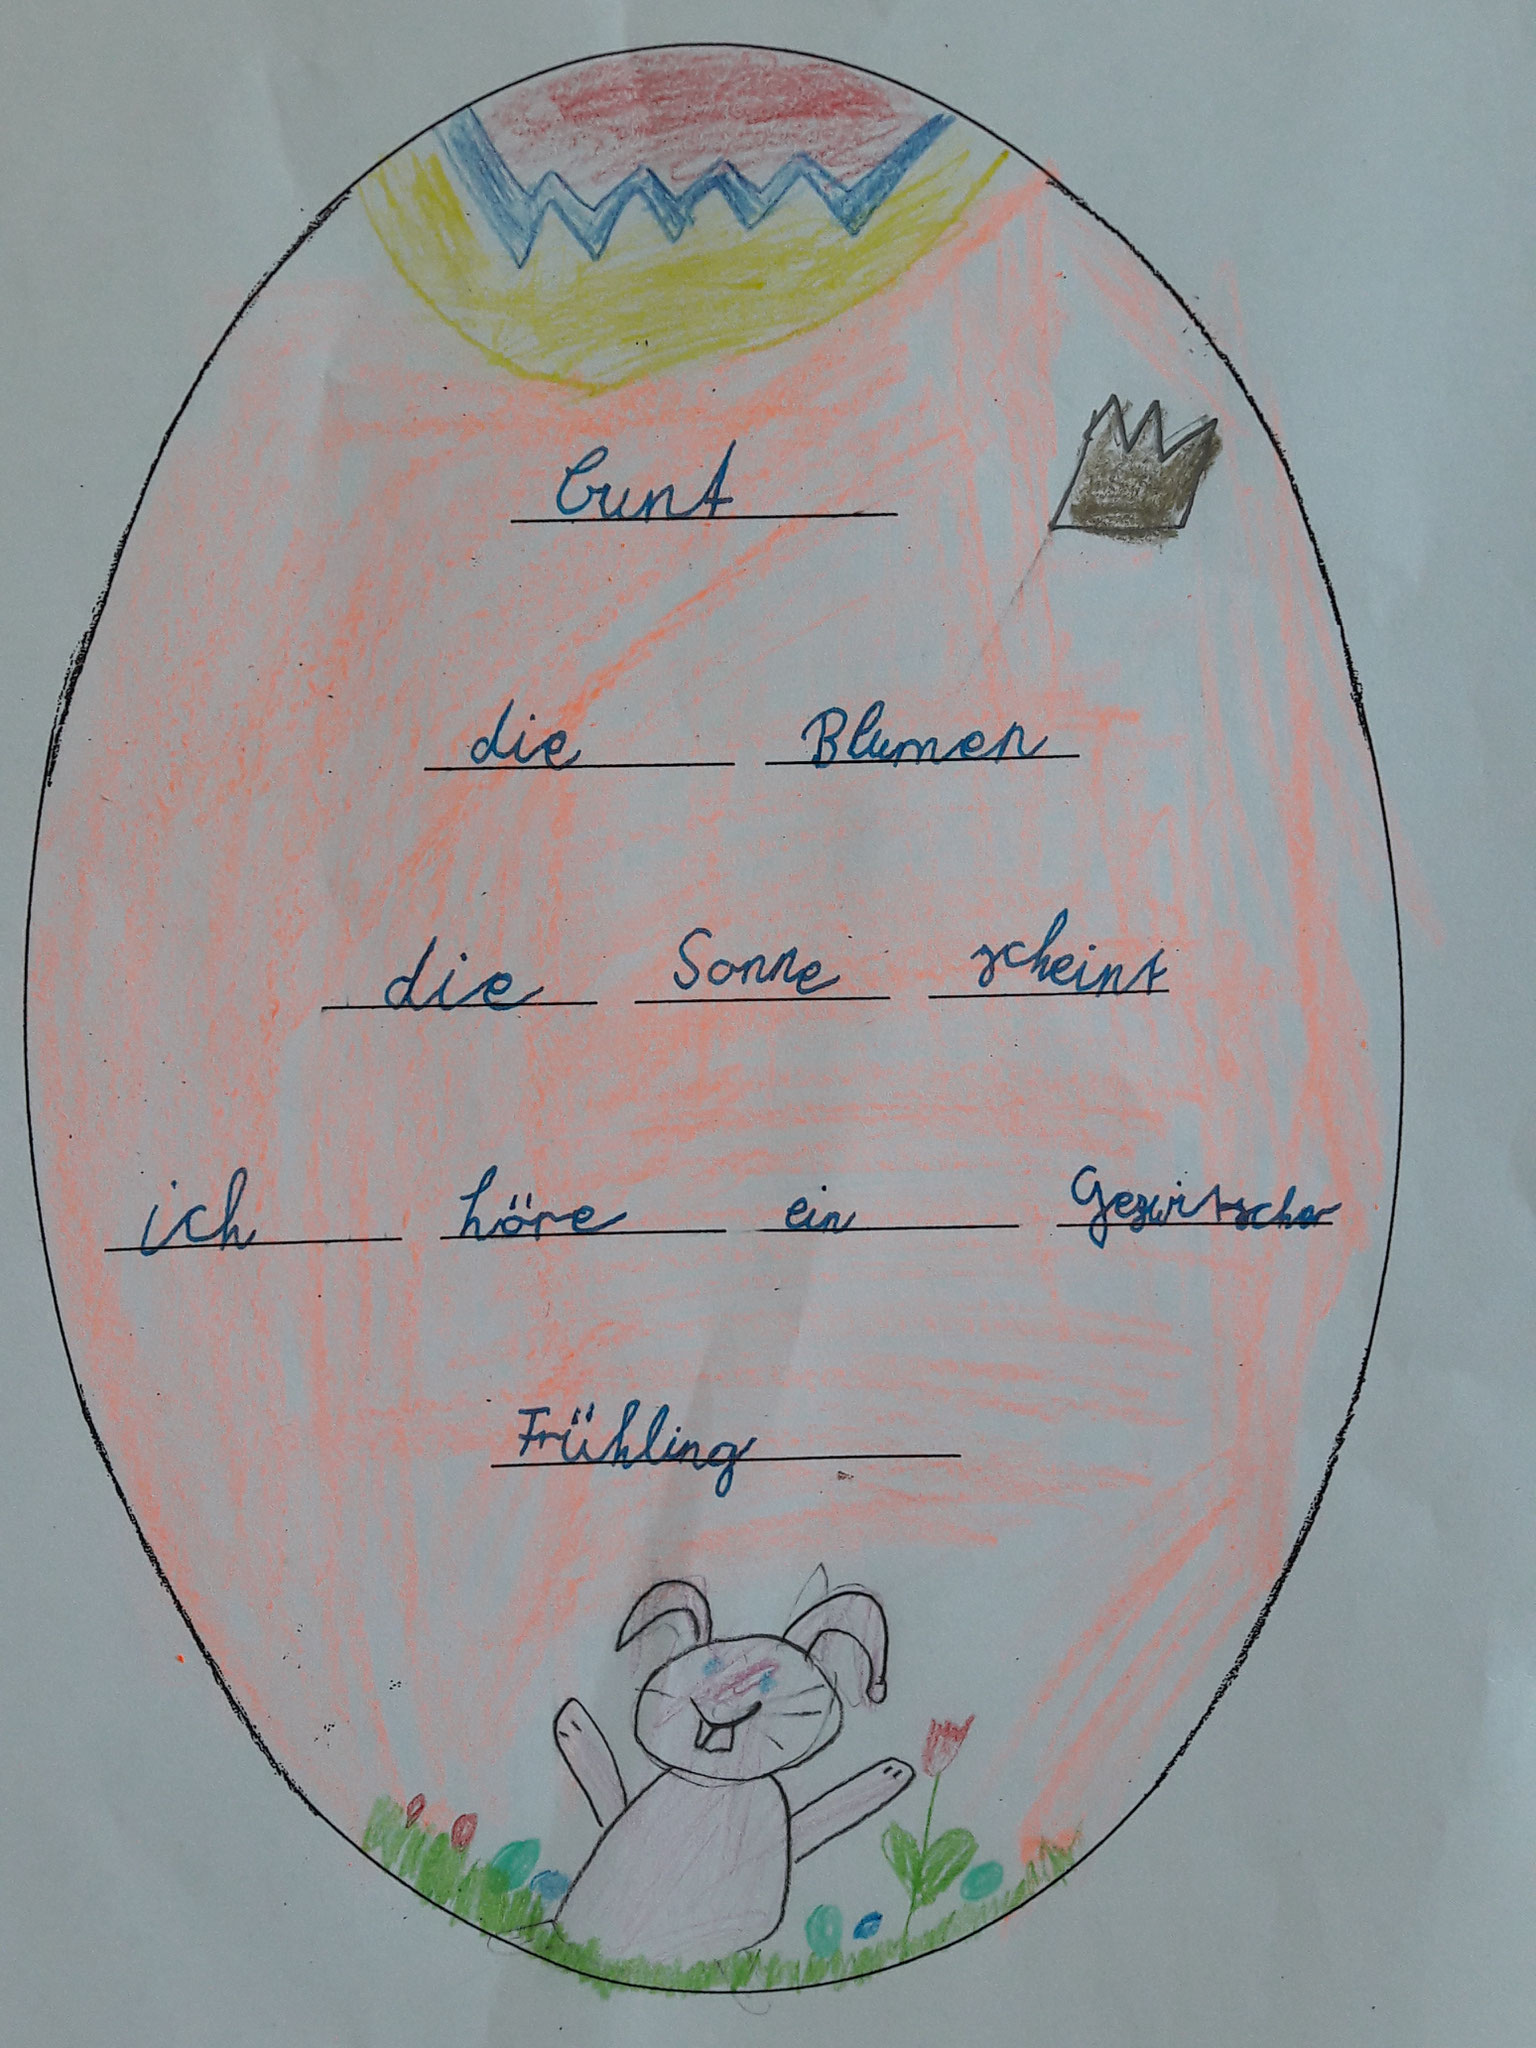 bunt
die Blumen
die Sonne scheint
ich höre ein Gezwitscher
Frühling